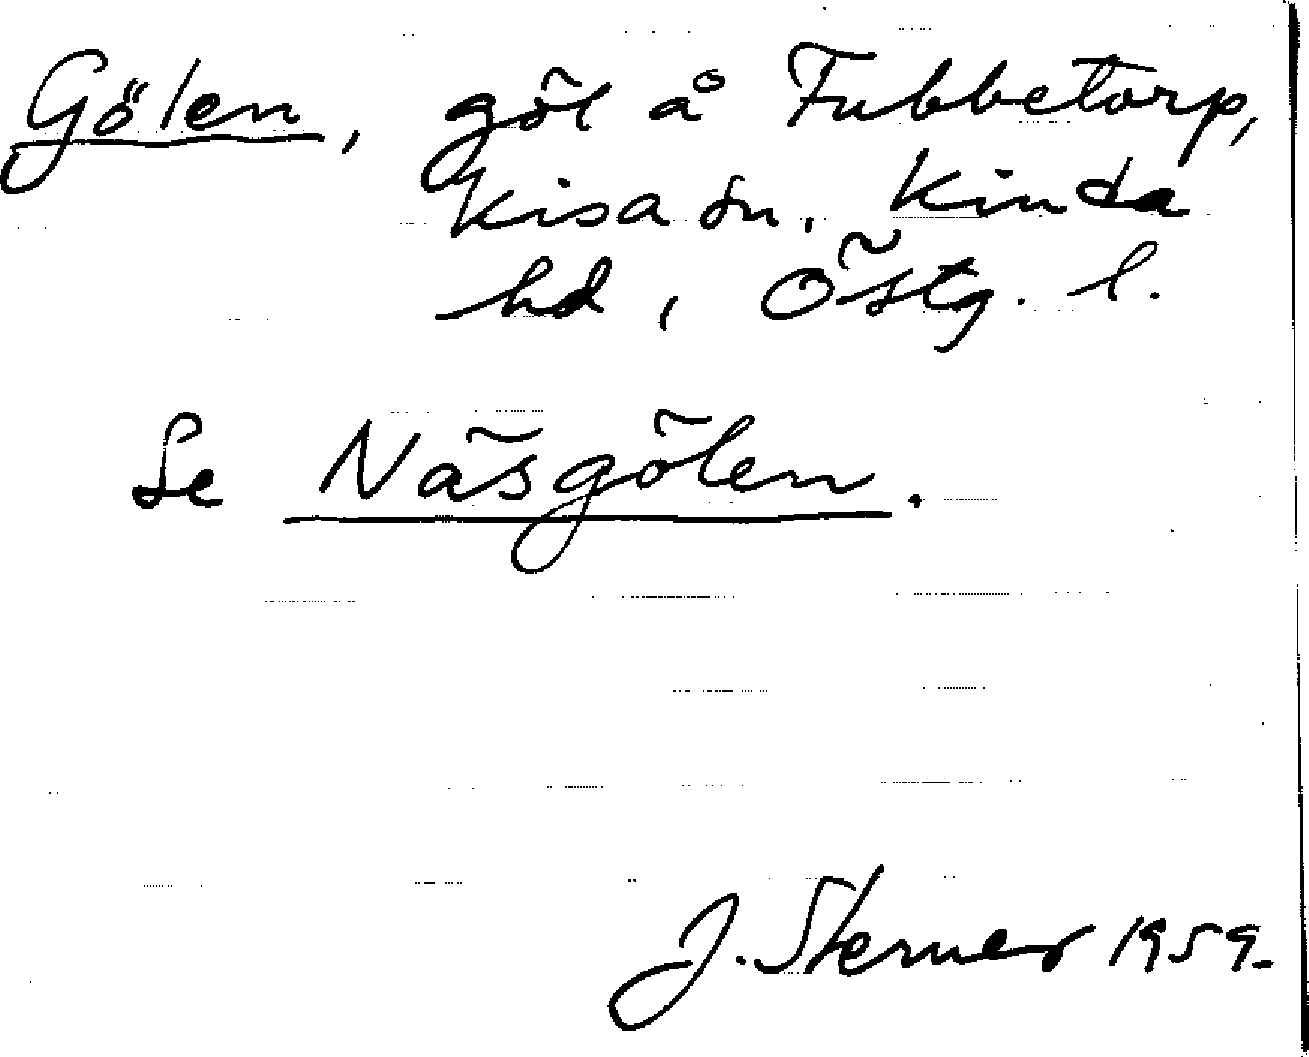 Gölen, göl å Fubbetorp,
Kisa sn. Kinda
hd, Östg. l.
Se Näsgölen.
J. Sterner 1959.